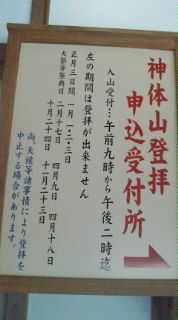 神体山登拝
申込受付所
入山受付…午前九時から午後二時迄
左の期間は登拝が出来ません
正月三日間 一月一・二・三日
大祭等祭典日 二月十七日 四月九日 四月十八日
十月二十四日 十一月二十三日
尚、天候等諸事情により登拝を
中止する場合があります。